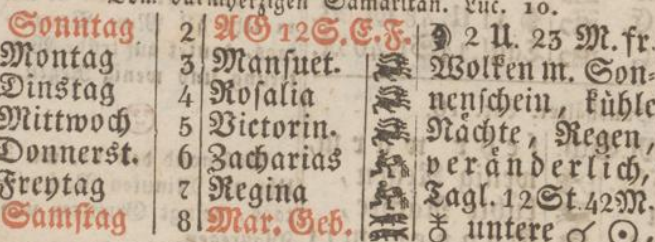 Dem barmherzigen Samaritan. Luc. 10.
Sonntag 2 A G 12 S. E. F. ☽ 2 U. 23 M. fr.
Montag 3 Mansuet. Wolken m. Son⸗
Dinstag 4 Rosalia nenschein, kühle
Mittwoch 5 Victorin. Nächte, Regen,
Donnerst. 6 Zacharias veränderlich,
Freytag 7 Regina Tagl. 12 St. 42 M.
Samstag 8 Mar. Geb. ☿ untere ☌ ☉,